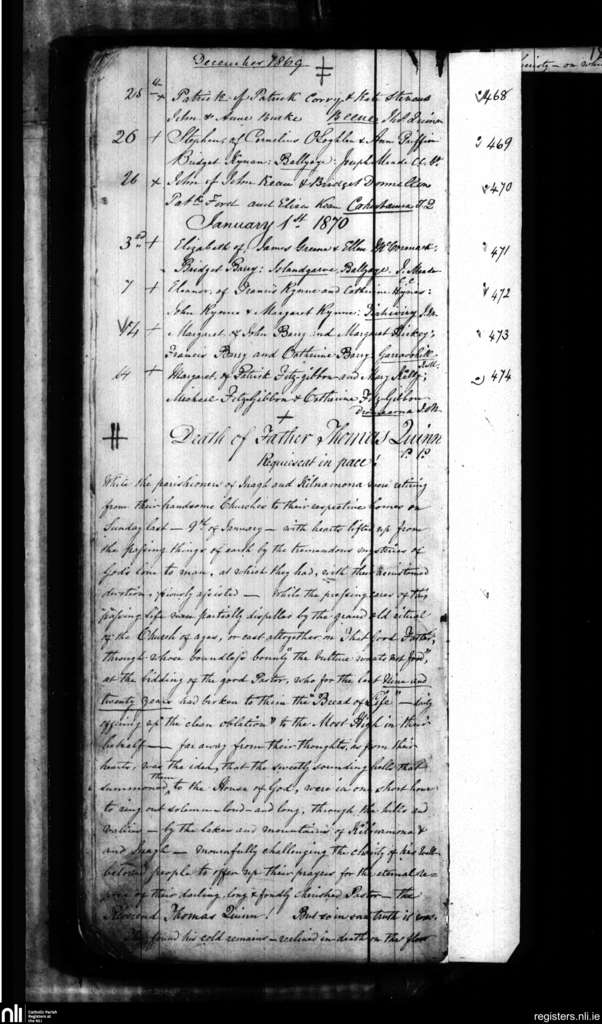 December 1869
25 + Patrick of Patrick Corry & Kate Stevens 468
John & Anne Burke Thos Quinn
26 + Stephen, of Cornelius O'Loghlen & Ann Griffin 469
Bridget Kynan: Ballyage: Joseph Meade
26 + John of John Kean & Bridget Donnellan 470
Patk Ford and Eliza Kean
January 1st 1870
3rd + Elizabeth of James Greene & Ellen McCormack: 471
Bridget Barry: Ballyage. J. Meade
7 + Eleanor, of Francis Kynne and Catherine Hynes: 472
John Kynne & Margaret Kynne:
14 + Margaret of John Barry and Margaret Hickey: 473
Francis Barry and Catherine Barry
14 + Margaret, of Patrick Fitzgibbon and Mary Kelly; 474
Michael FitzGibbon & Catherine FitzGibbon
Death of Father Thomas Quinn
P. P.
Requiescat in pace!
While the parishioners of Inagh and Kilnamona were retiring
from their handsome Churches to their respective homes on
Sunday last — 9th of January — with hearts lifted up from
the passing things of earth by the tremendous mysteries of
God's love to man, at which they had, with their accustomed
devotion, piously assisted — While the pressing cares of this
passing life were partially dispelled by the grand old ritual
of the Church of ages, or cast altogether on "That Good Father,
through whose boundless bounty" the vulture wants not food",
at the bidding of the good Pastor, who for the last Nine and
twenty years had broken to them the "Bread of Life" —
offering up "the clean oblation" to the Most High in their
behalf — far away from their thoughts, as from their
hearts, was the idea, that the sweetly sounding bells that
summoned them, to the House of God, were in one short hour
to ring out solemn — loud — and long, through the hills and
vallies — by the lakes and mountains of Kilnamona &
and Inagh — mournfully challenging the charity of his well
beloved people to offer up their prayers for the eternal re-
pose of their darling, long & fondly cherished Pastor — the
Reverend Thomas Quinn! But so in sad truth it was.
They found his cold remains — reclined in death on the floor
nli
Catholic Parish
Registers at
the NLI
registers.nli.ie